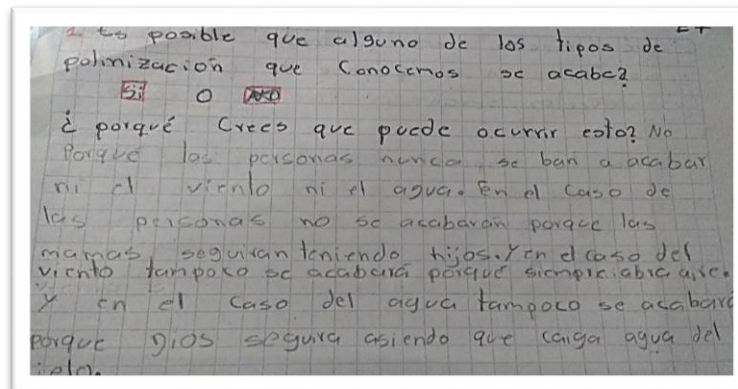 1 Es posible que alguno de los tipos de
polinización que Conocemos se acabe?
Si O NO
¿ porqué Crees que puede ocurrir esto? No
Porque las personas nunca se ban a acabar
ni el viento ni el agua. En el caso de
las personas no se acabaran porque las
mamas seguiran teniendo hijos. Y en el caso del
viento tampoko se acabara porque siempre abra aire.
Y en el caso del agua tampoco se acabara
porque Dios seguira asiendo que caiga agua del
cielo.